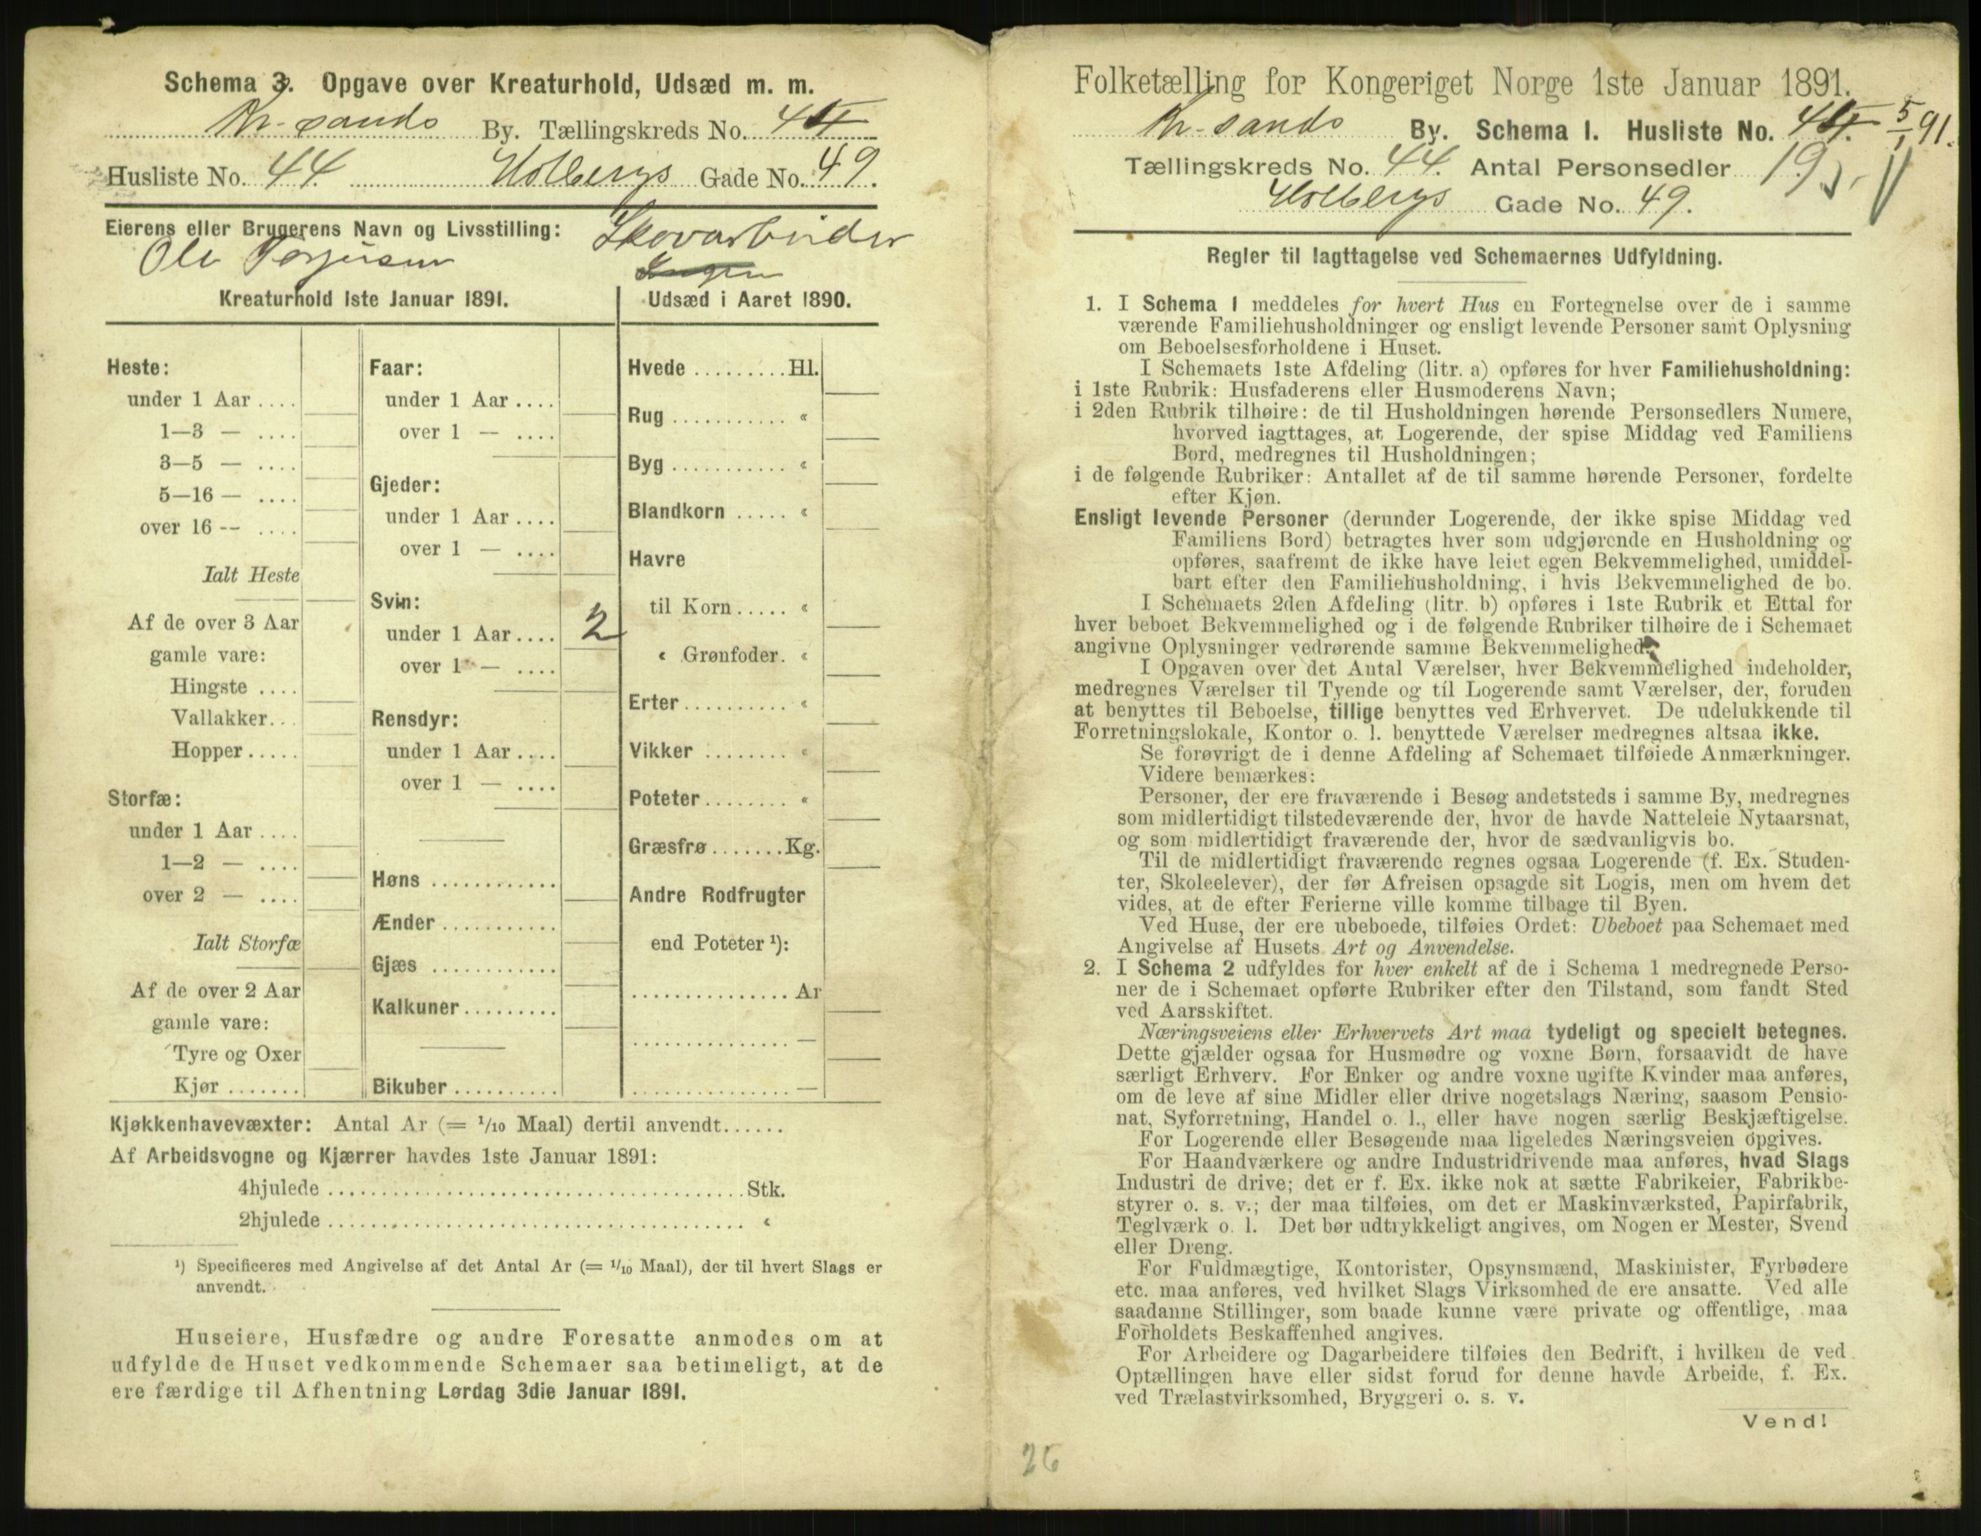 Schema 3. Opgave over Kreaturhold, Udsæd m. m.
Kr-sands By. Tællingskreds No. 44
Husliste No. 44. Holbergs Gade No. 49.
Eierens eller Brugerens Navn og Livsstilling: Skovarbeider
Ole Torjusen Ingen
Kreaturhold 1ste Januar 1891.
Heste:
under 1 Aar ....
1—3 — ....
3—5 — ....
5—16 — ....
over 16 -- ....
Ialt Heste
Af de over 3 Aar
gamle vare:
Hingste ....
Vallakker...
Hopper.....
Storfæ:
under 1 Aar ....
1—2 — ....
over 2 — ....
Ialt Storfæ
Af de over 2 Aar
gamle vare:
Tyre og Oxer
Kjør .......
Faar:
under 1 Aar ....
over 1 — ....
Gjeder:
under 1 Aar ....
over 1 — ....
Svin:
under 1 Aar .... 2
over 1 — ....
Rensdyr:
under 1 Aar ....
over 1 — ....
Høns ............
Ænder ...........
Gjæs ............
Kalkuner.........
Bikuber..........
Udsæd i Aaret 1890.
Hvede .........Hl.
Rug ........... «
Byg ........... «
Blandkorn ..... «
Havre
til Korn..... «
« Grønfoder. «
Erter.......... «
Vikker ........ «
Poteter........ «
Græsfrø .......Kg.
Andre Rodfrugter
end Poteter ¹):
............... Ar
............... —
............... —
Kjøkkenhavevæxter: Antal Ar (= 1/10 Maal) dertil anvendt......
Af Arbeidsvogne og Kjærrer havdes 1ste Januar 1891:
4hjulede ........................................Stk.
2hjulede ........................................ «
¹) Specificeres med Angivelse af det Antal Ar (= 1/10 Maal), der til hvert Slags er
anvendt.
Huseiere, Husfædre og andre Foresatte anmodes om at
udfylde de Huset vedkommende Schemaer saa betimeligt, at de
ere færdige til Afhentning Lørdag 3die Januar 1891.
Folketælling for Kongeriget Norge 1ste Januar 1891.
Kr-sands By. Schema I. Husliste No. 44. 5/1 91.
Tællingskreds No. 44. Antal Personsedler 19
Holbergs Gade No. 49.
Regler til Iagttagelse ved Schemaernes Udfyldning.
1. I Schema 1 meddeles for hvert Hus en Fortegnelse over de i samme
værende Familiehusholdninger og ensligt levende Personer samt Oplysning
om Beboelsesforholdene i Huset.
I Schemaets 1ste Afdeling (litr. a) opføres for hver Familiehusholdning:
i 1ste Rubrik: Husfaderens eller Husmoderens Navn;
i 2den Rubrik tilhøire: de til Husholdningen hørende Personsedlers Numere,
hvorved iagttages, at Logerende, der spise Middag ved Familiens
Bord, medregnes til Husholdningen;
i de følgende Rubriker: Antallet af de til samme hørende Personer, fordelte
efter Kjøn.
Ensligt levende Personer (derunder Logerende, der ikke spise Middag ved
Familiens Bord) betragtes hver som udgjørende en Husholdning og
opføres, saafremt de ikke have leiet egen Bekvemmelighed, umiddel-
bart efter den Familiehusholdning, i hvis Bekvemmelighed de bo.
I Schemaets 2den Afdeling (litr. b) opføres i 1ste Rubrik et Ettal for
hver beboet Bekvemmelighed og i de følgende Rubriker tilhøire de i Schemaet
angivne Oplysninger vedrørende samme Bekvemmelighed.
I Opgaven over det Antal Værelser, hver Bekvemmelighed indeholder,
medregnes Værelser til Tyende og til Logerende samt Værelser, der, foruden
at benyttes til Beboelse, tillige benyttes ved Erhvervet. De udelukkende til
Forretningslokale, Kontor o. l. benyttede Værelser medregnes altsaa ikke.
Se forøvrigt de i denne Afdeling af Schemaet tilføiede Anmærkninger.
Videre bemærkes:
Personer, der ere fraværende i Besøg andetsteds i samme By, medregnes
som midlertidigt tilstedeværende der, hvor de havde Natteleie Nytaarsnat,
og som midlertidigt fraværende der, hvor de sædvanligvis bo.
Til de midlertidigt fraværende regnes ogsaa Logerende (f. Ex. Studen-
ter, Skoleelever), der før Afreisen opsagde sit Logis, men om hvem det
vides, at de efter Ferierne ville komme tilbage til Byen.
Ved Huse, der ere ubeboede, tilføies Ordet: Ubeboet paa Schemaet med
Angivelse af Husets Art og Anvendelse.
2. I Schema 2 udfyldes for hver enkelt af de i Schema 1 medregnede Perso-
ner de i Schemaet opførte Rubriker efter den Tilstand, som fandt Sted
ved Aarsskiftet.
Næringsveiens eller Erhvervets Art maa tydeligt og specielt betegnes.
Dette gjælder ogsaa for Husmødre og voxne Børn, forsaavidt de have
særligt Erhverv. For Enker og andre voxne ugifte Kvinder maa anføres,
om de leve af sine Midler eller drive nogetslags Næring, saasom Pensio-
nat, Syforretning, Handel o. l., eller have nogen særlig Beskjæftigelse.
For Logerende eller Besøgende maa ligeledes Næringsveien opgives.
For Haandværkere og andre Industridrivende maa anføres, hvad Slags
Industri de drive; det er f. Ex. ikke nok at sætte Fabrikeier, Fabrikbe-
styrer o. s. v.; der maa tilføies, om det er Maskinværksted, Papirfabrik,
Teglværk o. l. Det bør udtrykkeligt angives, om Nogen er Mester, Svend
eller Dreng.
For Fuldmægtige, Kontorister, Opsynsmænd, Maskinister, Fyrbødere
etc. maa anføres, ved hvilket Slags Virksomhed de ere ansatte. Ved alle
saadanne Stillinger, som baade kunne være private og offentlige, maa
Forholdets Beskaffenhed angives.
For Arbeidere og Dagarbeidere tilføies den Bedrift, i hvilken de ved
Optællingen have eller sidst forud for denne havde Arbeide, f. Ex.
ved Trælastvirksomhed, Bryggeri o. s. v.
Vend!
26